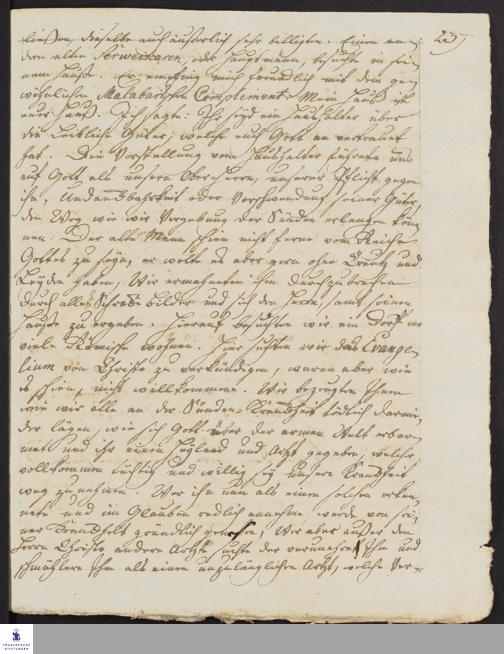 ließen, dieselbe auch äußerlich sehr billigten. Einen an-
dern alten Serweikaren, oder Hauptmann, besuchte in sei-
nem Hause. Er empfing mich freundlich mit dem ge-
wöhnlichen Malabarischen Compliment: Mein Haus ist
euer Hauß. Ich sagte: Ihr seyd ein Haushalter über
die Leibliche Güter, welche euch Gott an vertrauet
hat. Die Vorstellung vom Haushalter führete uns
auf Gott als unsern Oberherrn, unserer Pflicht gegen
ihn, Undanckbahrkeit oder Verschwendung seiner Güter,
den Weg wie wir Vergebung der Sünden erlangen kön-
nen. Der alte Mann schien nicht ferne vom Reiche
Gottes zu seyn, er wolte es aber gern ohne Creutz und
Leyden haben, Wir ermahneten ihn durchzubrechen
durch alle Schreck bilder und sich dem Herrn, samt seinem
Hauße zu ergeben. Hierauf besuchten wir ein Dorf wo
viele Römische wohnen. Hier suchten wir das Evange-
lium von Christo zu verkündigen, waren aber wie
es schien, nicht willkommen. Wir bezeugten Ihnen
wie wir alle an der Sünden Kranckheit tödlich darnie-
der lägen, wie sich Gott über der armen Welt erbar-
met und ihr einen Heyland und Artzt gegeben, welcher
vollkommen tüchtig und willig sey unsere Kranckheit
weg zu nehmen. Wer ihn nun als einen solchen erken-
nete und im Glauben redlich annehme werde von sei-
ner Kranckheit gründlich genesen, Wer aber außer dem
Herrn Christo andere Artzte suchte der verunehret Ihn und
schmählere Ihn als einen unzulänglichen Artzt, welche Ver-
FRANCKESCHE
STIFTUNGEN